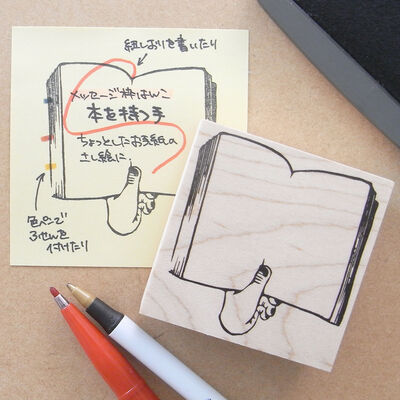 紐しおりを書いたり
メッセージ枠はんこ
本を持つ手
ちょっとしたお手紙の
さし絵に
色ペンで
ふせんを
付けたり